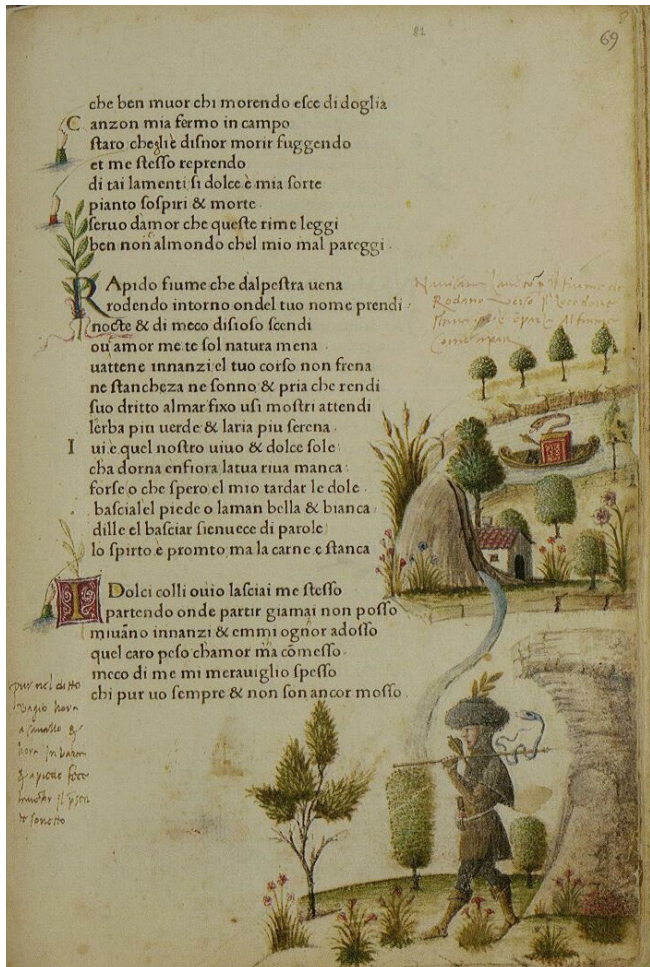 81
69
che ben muor chi morendo esce di doglia
Canzon mia fermo in campo
staro cheglie disnor morir fuggendo
et me stesso reprendo
di tai lamenti si dolce è mia sorte
pianto sospiri & morte .
seruo damor che queste rime leggi
ben non almondo chel mio mal pareggi .
RApido fiume che dalpestra uena
rodendo intorno ondel tuo nome prendi :
nocte & di meco disioso scendi
ou amor me te sol natura mena
uattene innanzi el tuo corso non frena
ne stancheza ne sonno & pria che rendi
suo dritto almar fixo usi mostri attendi
lerba piu uerde & laria piu serena .
Iui è quel nostro uiuo & dolce sole
cha dorna enfiora latua riua manca :
forse o che spero el mio tardar le dole .
bascialel piede o laman bella & bianca
dille el basciar sienuece di parole
lo spirto è promto ma la carne e stanca
I Dolci colli ouio lasciai me stesso
partendo onde partir giamai non posso
miuāno innanzi & emmi ognor adosso
quel caro peso chamor ma cōmesso .
meco di me mi meraviglio spesso
chi pur uo sempre & non son ancor mosso .
il fiume
Rodano verso
al fiume
pur nel ditto
viagio hora
a cavallo &
hora in barca
& a piede fece
sonetto